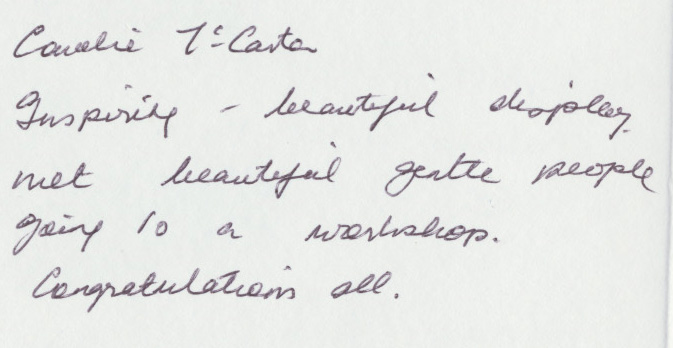 Inspiring - beautiful display.
met beautiful gentle people
going to a workshop.
Congratulations all.